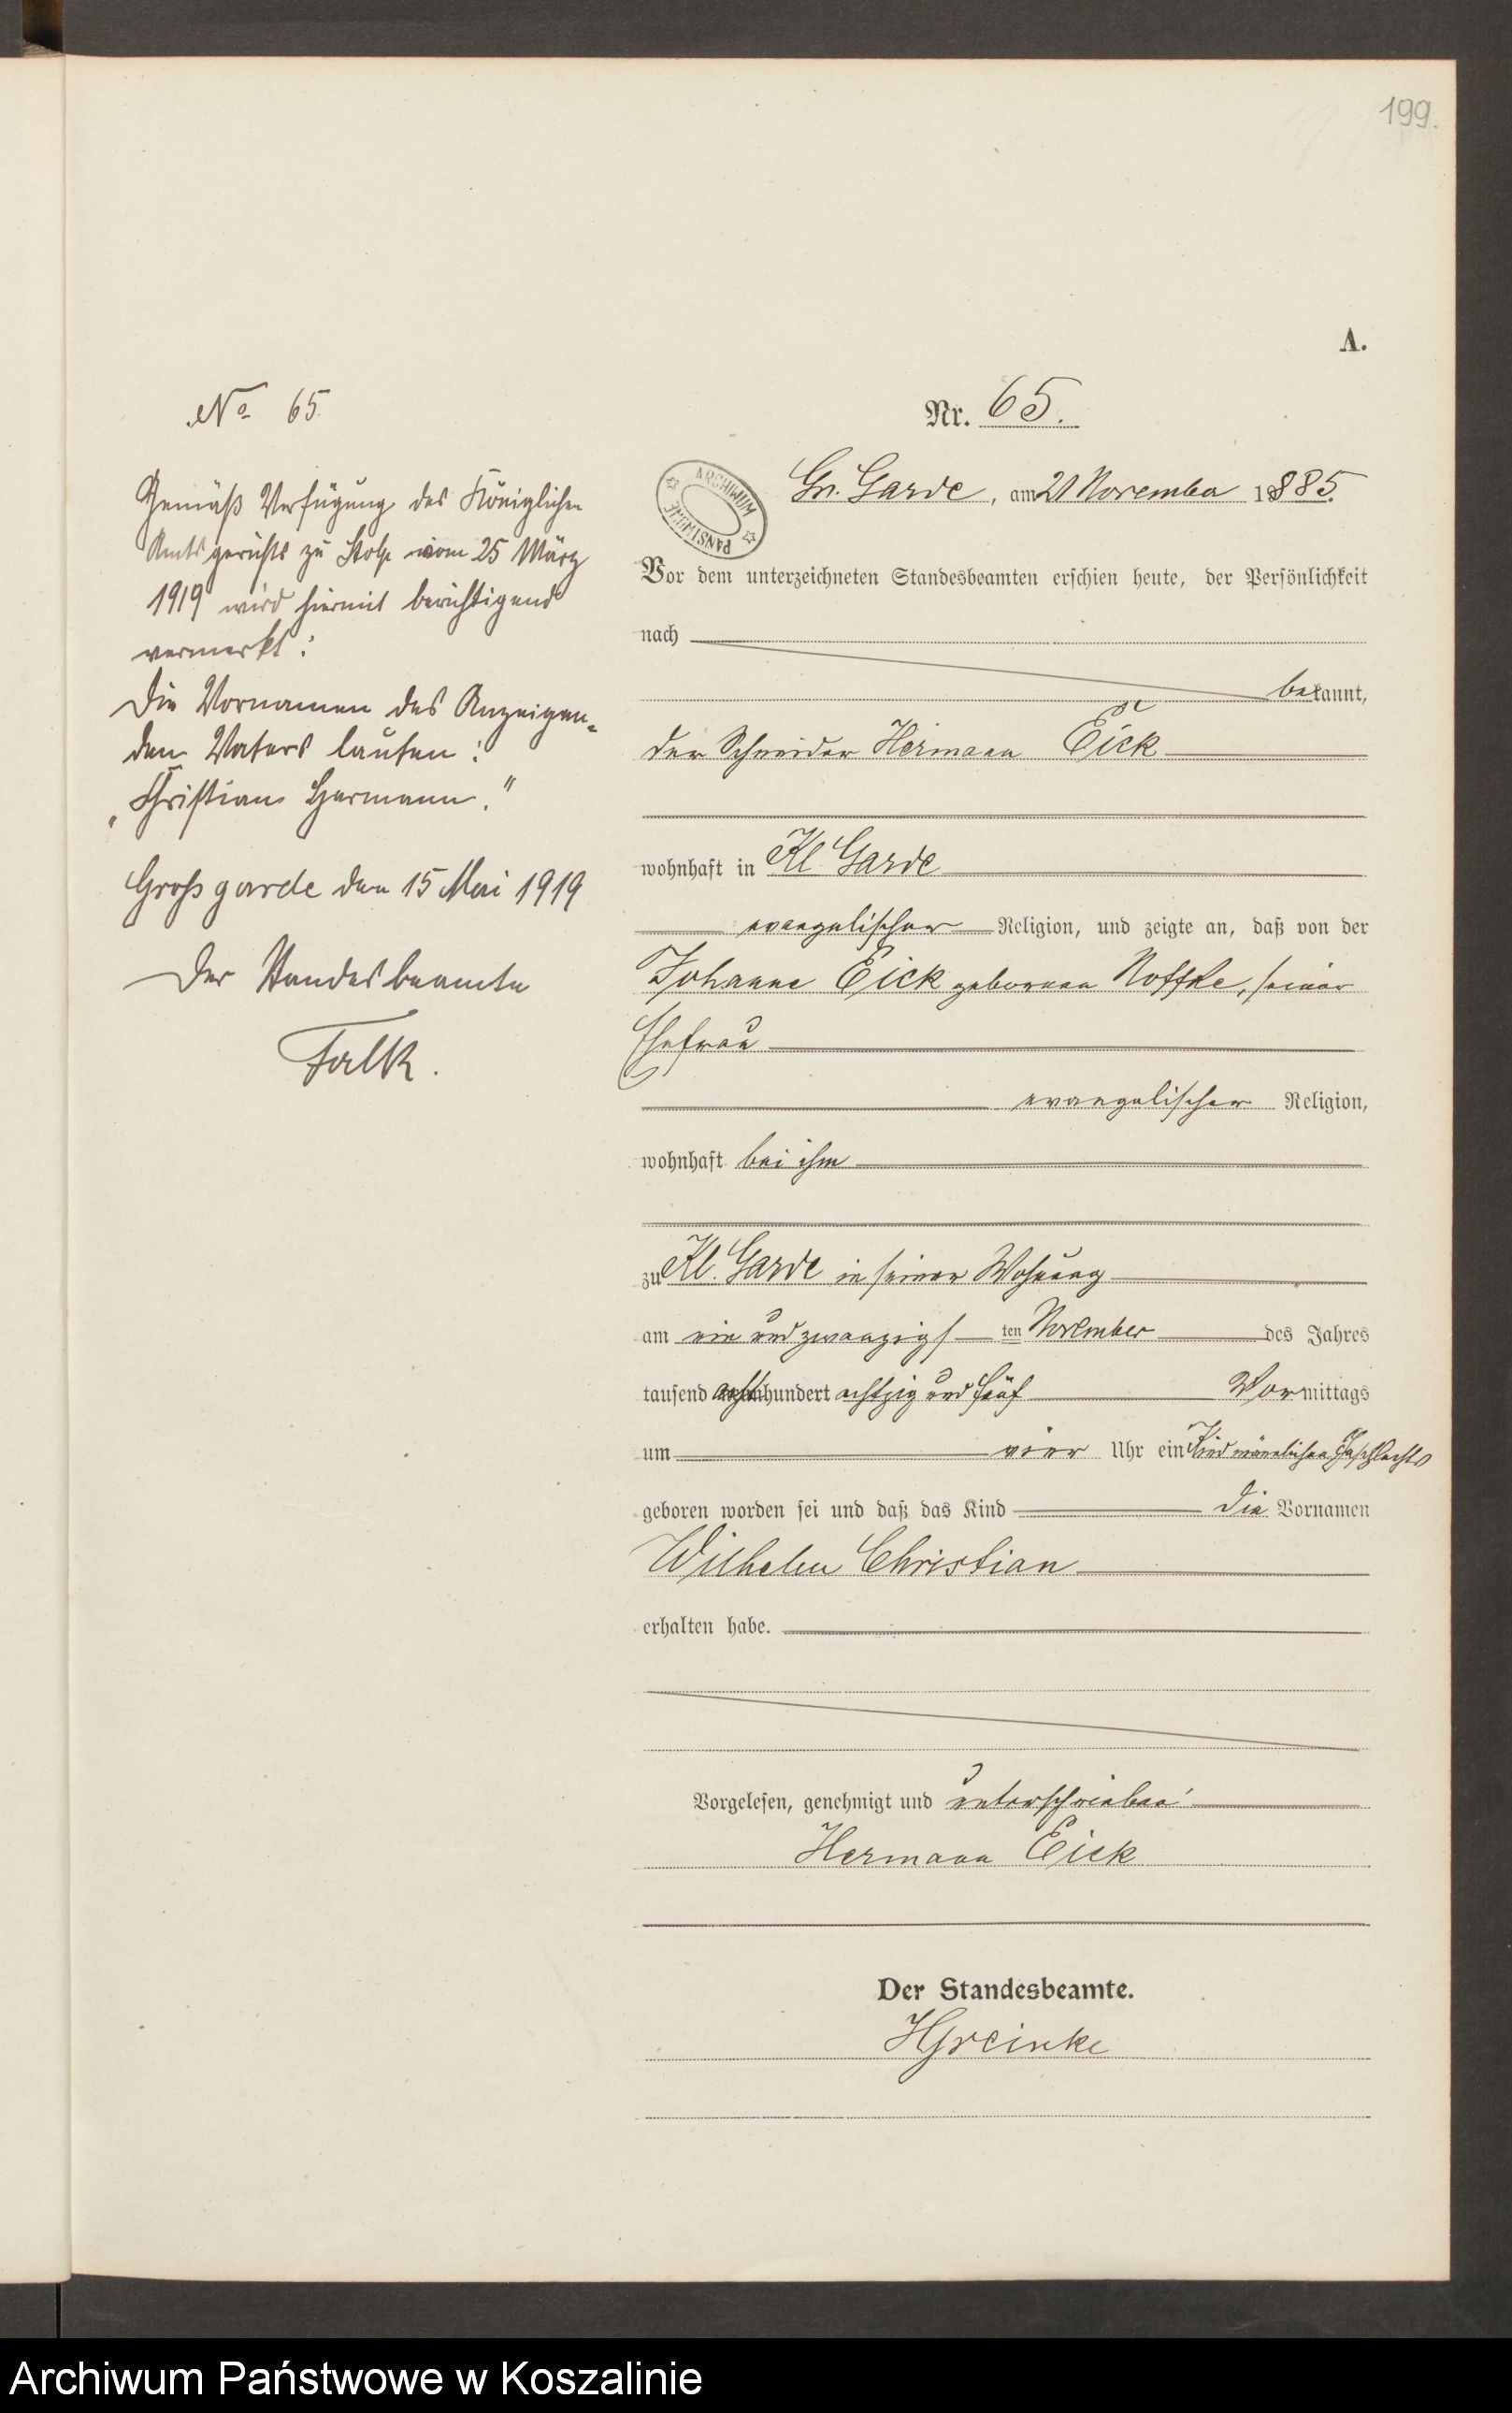 199.
A.
No 65.
Gemäß Verfügung des Königlichen
Amtsgerichts zu Stolp vom 25 März
1919 wird hiermit berichtigend
vermerkt:
Die Vornamen des Anzeigen-
den Vaters lauten:
„Christian Hermann."
Großgarde den 15 Mai 1919
Der Standesbeamte
Falk.
Nr. 65.
ARCHIWUM PAŃSTWOWE
Gr. Garde, am 21 November 1885.
Vor dem unterzeichneten Standesbeamten erschien heute, der Persönlichkeit
nach
bekannt,
der Schneider Hermann Eick
wohnhaft in Kl. Garde
evangelischer Religion, und zeigte an, daß von der
Johanne Eick geborenen Noffke, seiner
Ehefrau
evangelischer Religion,
wohnhaft bei ihm
zu Kl. Garde in seiner Wohnung
am ein und zwanzigsten November des Jahres
tausend achthundert achtzig und fünf Vormittags
um vier Uhr ein Kind männlichen Geschlechts
geboren worden sei und daß das Kind die Vornamen
Wilhelm Christian
erhalten habe.
Vorgelesen, genehmigt und unterschrieben
Hermann Eick
Der Standesbeamte.
Archiwum Państwowe w Koszalinie